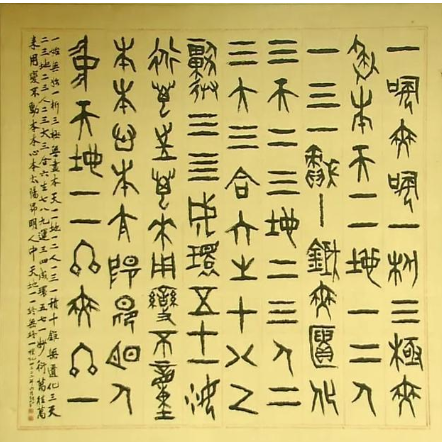 一始無始一析三極無
盡本天一一地一二人
一三一積十鉅無匱化
三天二三地二三人二
三大三合六生七八九
運三四成環五七一妙
衍萬往萬來用變不動
本本心本太陽昂明人
中天地一一終無終一
一始無始一析三極無盡本天一一地一二人一三一積十鉅無匱化三天
二三地二三人二三大三合六生七八九運三四成環五七一妙衍萬往萬
來用變不動本本心本太陽昂明人中天地一一終無終一